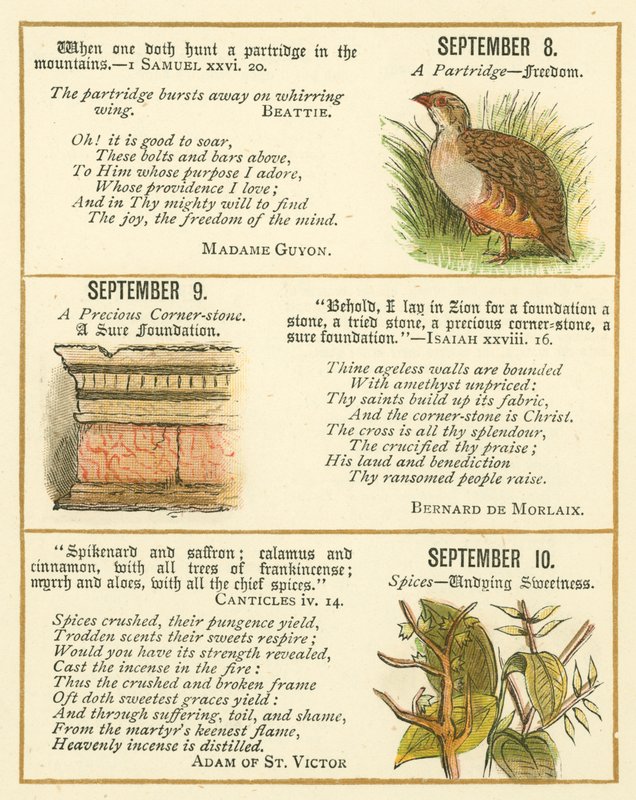 When one doth hunt a partridge in the
mountains.—1 SAMUEL xxvi. 20.
The partridge bursts away on whirring
wing. BEATTIE.
Oh! it is good to soar,
These bolts and bars above,
To Him whose purpose I adore,
Whose providence I love;
And in Thy mighty will to find
The joy, the freedom of the mind.
MADAME GUYON.
SEPTEMBER 8.
A Partridge—Freedom.
SEPTEMBER 9.
A Precious Corner-stone.
A Sure Foundation.
"Behold, I lay in Zion for a foundation a
stone, a tried stone, a precious corner-stone, a
sure foundation."—ISAIAH xxviii. 16.
Thine ageless walls are bounded
With amethyst unpriced:
Thy saints build up its fabric,
And the corner-stone is Christ.
The cross is all thy splendour,
The crucified thy praise;
His laud and benediction
Thy ransomed people raise.
BERNARD DE MORLAIX.
"Spikenard and saffron; calamus and
cinnamon, with all trees of frankincense;
myrrh and aloes, with all the chief spices."
CANTICLES iv. 14.
Spices crushed, their pungence yield,
Trodden scents their sweets respire;
Would you have its strength revealed,
Cast the incense in the fire:
Thus the crushed and broken frame
Oft doth sweetest graces yield:
And through suffering, toil, and shame,
From the martyr's keenest flame,
Heavenly incense is distilled.
ADAM OF ST. VICTOR
SEPTEMBER 10.
Spices—Undying Sweetness.